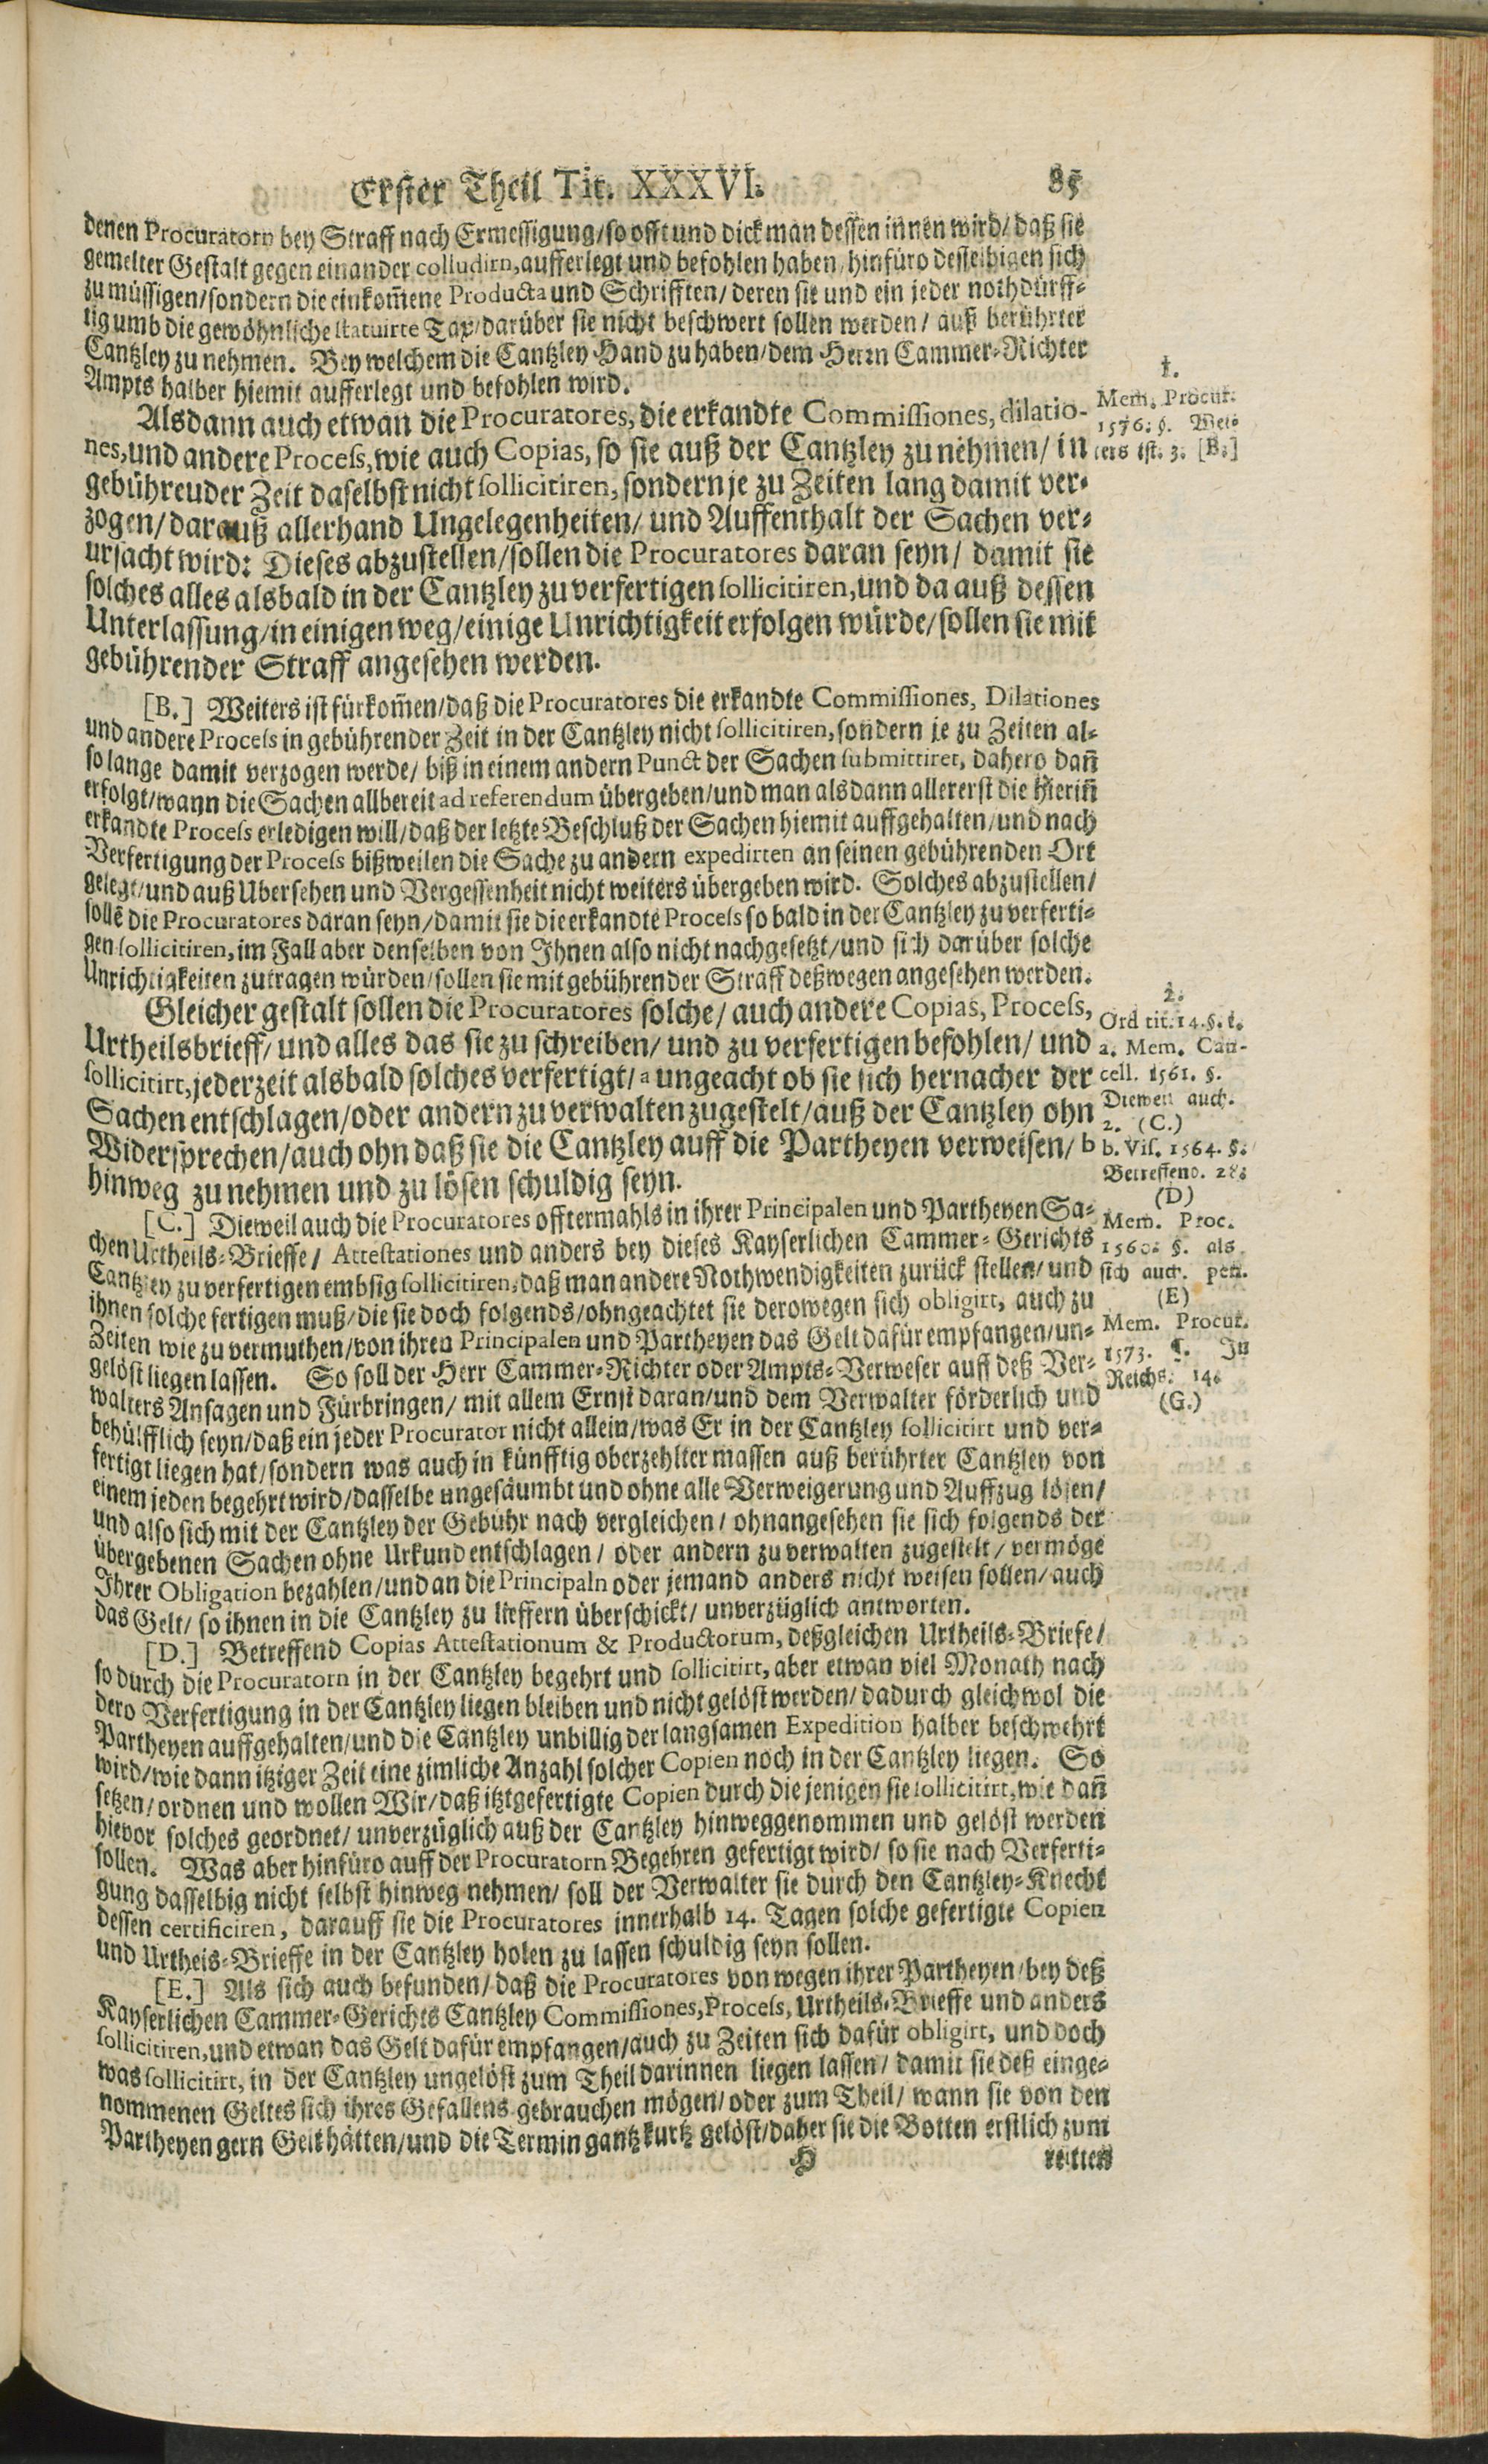 Erster Theil Tit. XXXVI. 85
denen Procuratorn bey Straff nach Ermessigung/so offt und dick man dessen innen wird/daß sie
gemelter Gestalt gegen einander colludirn, aufferlegt und befohlen haben/hinfüro desselbigen sich
zu müssigen/sondern die einkom̃ene Producta und Schrifften/deren sie und ein jeder nothdürff-
tig umb die gewöhnliche statuirte Tax/darüber sie nicht beschwert sollen werden/auß berührter
Cantzley zu nehmen. Bey welchem die Cantzley Hand zu haben/dem Herrn Cammer-Richter
Ampts halber hiemit aufferlegt und befohlen wird.
1.
Mem. Procur.
1576. §. Wei-
ters ist. 3. [B.]
Als dann auch etwan die Procuratores, die erkandte Commissiones, dilatio-
nes, und andere Process, wie auch Copias, so sie auß der Cantzley zu nehmen/in
gebührender Zeit daselbst nicht sollicitiren, sondern je zu Zeiten lang damit ver-
zogen/darauß allerhand Ungelegenheiten/und Auffenthalt der Sachen ver-
ursacht wird: Dieses abzustellen/sollen die Procuratores daran seyn/damit sie
solches alles alsbald in der Cantzley zu verfertigen sollicitiren, und da auß dessen
Unterlassung/in einigen weg/einige Unrichtigkeit erfolgen würde/sollen sie mit
gebührender Straff angesehen werden.
[B.] Weiters ist fürkom̃en/daß die Procuratores die erkandte Commissiones, Dilationes
und andere Process in gebührender Zeit in der Cantzley nicht sollicitiren, sondern je zu Zeiten al-
so lange damit verzogen werde/biß in einem andern Punct der Sachen submittiret, dahero dañ
erfolgt/wann die Sachen allbereit ad referendum übergeben/und man alsdann allererst die hieriñ
erkandte Process erledigen will/daß der letzte Beschluß der Sachen hiemit auffgehalten/und nach
Verfertigung der Process bißweilen die Sache zu andern expedirten an seinen gebührenden Ort
gelegt/und auß Übersehen und Vergessenheit nicht weiters übergeben wird. Solches abzustellen/
sollē die Procuratores daran seyn/damit sie die erkandte Process so bald in der Cantzley zu verferti-
gen sollicitiren, im Fall aber denselben von Ihnen also nicht nachgesetzt/und sich darüber solche
Unrichtigkeiten zutragen würden/sollen sie mit gebührender Straff deßwegen angesehen werden.
Gleicher gestalt sollen die Procuratores solche/auch andere Copias, Process,
Urtheilsbrieff/und alles das sie zu schreiben/und zu verfertigen befohlen/und
sollicitirt, jederzeit alsbald solches verfertigt/a ungeacht ob sie sich hernacher der
Sachen entschlagen/oder andern zu verwalten zugestelt/auß der Cantzley ohn
Widersprechen/auch ohn daß sie die Cantzley auff die Partheyen verweisen/b
hinweg zu nehmen und zu lösen schuldig seyn.
2.
Ord tit. 14. §. 1.
a. Mem. Can-
cell. 1561. §.
Dieweil auch.
2. (C.)
b. Vis. 1564. §.
Betreffend. 28.
(D)
Mem. Proc.
1560. §. als
sich auch. pen.
(E)
Mem. Procur.
1573. §. In
Reichs. 14.
(G.)
[C.] Dieweil auch die Procuratores offtermahls in ihrer Principalen und Partheyen Sa-
chen Urtheils-Brieffe/Attestationes und anders bey dieses Kayserlichen Cammer-Gerichts
Cantzley zu verfertigen embsig sollicitiren, daß man andere Nothwendigkeiten zurück stellen/und
ihnen solche fertigen muß/die sie doch folgends/ohngeachtet sie derowegen sich obligirt, auch zu
Zeiten wie zu vermuthen/von ihren Principalen und Partheyen das Gelt dafür empfangen/un-
gelöst liegen lassen. So soll der Herr Cammer-Richter oder Ampts-Verweser auff deß Ver-
walters Ansagen und Fürbringen/mit allem Ernst daran/und dem Verwalter förderlich und
behülfflich seyn/daß ein jeder Procurator nicht allein/was Er in der Cantzley sollicitirt und ver-
fertigt liegen hat/sondern was auch in künfftig oberzehlter massen auß berührter Cantzley von
einem jeden begehrt wird/dasselbe ungesäumbt und ohne alle Verweigerung und Auffzug lösen/
und also sich mit der Cantzley der Gebühr nach vergleichen/ohnangesehen sie sich folgends der
übergebenen Sachen ohne Urkund entschlagen/oder andern zu verwalten zugestelt/vermöge
Ihrer Obligation bezahlen/und an die Principaln oder jemand anders nicht weisen sollen/auch
das Gelt/so ihnen in die Cantzley zu lieffern überschickt/unverzüglich antworten.
[D.] Betreffend Copias Attestationum & Productorum, deßgleichen Urtheils-Briefe/
so durch die Procuratorn in der Cantzley begehrt und sollicitirt, aber etwan viel Monath nach
dero Verfertigung in der Cantzley liegen bleiben und nicht gelöst werden/dadurch gleichwol die
Partheyen auffgehalten/und die Cantzley unbillig der langsamen Expedition halber beschwehrt
wird/wie dann itziger Zeit eine zimliche Anzahl solcher Copien noch in der Cantzley liegen. So
setzen/ordnen und wollen Wir/daß itztgefertigte Copien durch die jenigen sie sollicitirt, wie dañ
hievor solches geordnet/unverzüglich auß der Cantzley hinweggenommen und gelöst werden
sollen. Was aber hinfüro auff der Procuratorn Begehren gefertigt wird/so sie nach Verferti-
gung dasselbig nicht selbst hinweg nehmen/soll der Verwalter sie durch den Cantzley-Knecht
dessen certificiren, darauff sie die Procuratores innerhalb 14. Tagen solche gefertigte Copien
und Urtheis-Brieffe in der Cantzley holen zu lassen schuldig seyn sollen.
[E.] Als sich auch befunden/daß die Procuratores von wegen ihrer Partheyen/bey deß
Kayserlichen Cammer-Gerichts Cantzley Commissiones, Process, Urtheils-Brieffe und anders
sollicitiren, und etwan das Gelt dafür empfangen/auch zu Zeiten sich dafür obligirt, und doch
was sollicitirt, in der Cantzley ungelöst zum Theil darinnen liegen lassen/damit sie deß einge-
nommenen Geltes sich ihres Gefallens gebrauchen mögen/oder zum Theil/wann sie von den
Partheyen gern Gelt hätten/und die Termin gantz kurtz gelöst/daher sie die Botten erstlich zum
H reitten